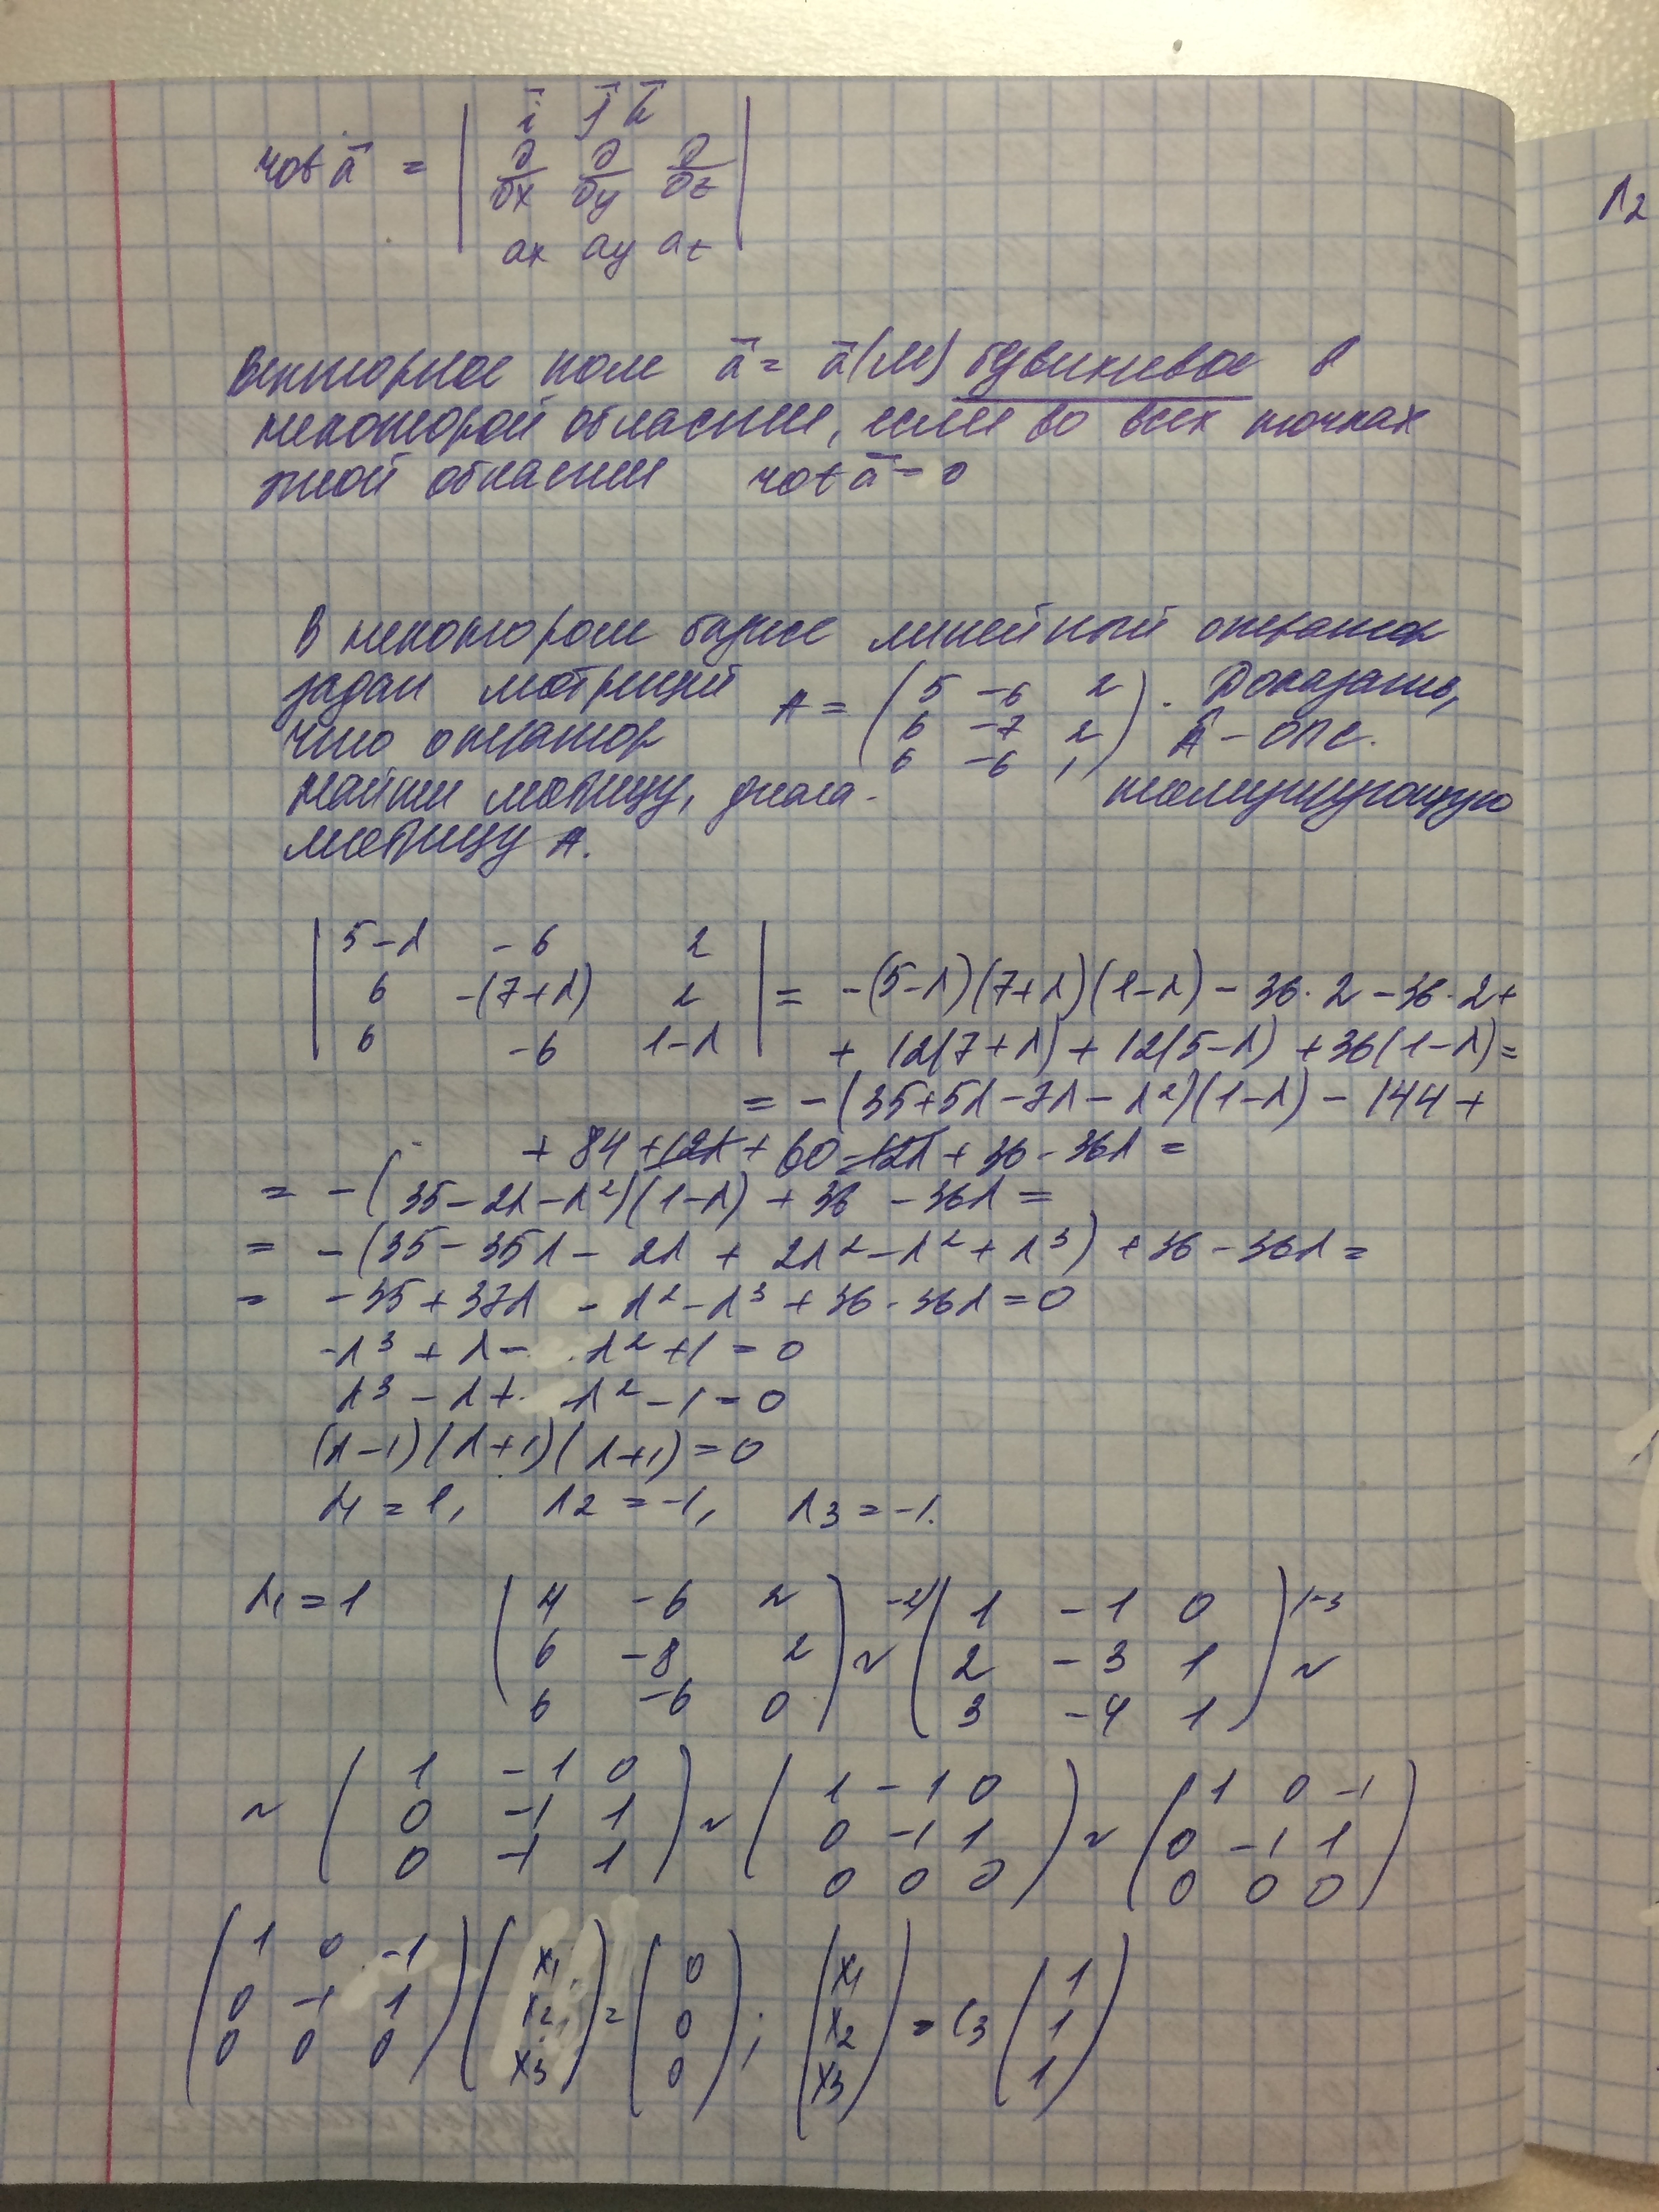 rot a̅ = | i̅ j̅ k̅ |
| ∂/∂x ∂/∂y ∂/∂z |
| ax ay az |
Векторное поле a̅ = a̅(M) безвихревое в
некоторой области, если во всех точках
этой области rot a̅ = 0
В некотором базисе линейный оператор
задан матрицей A = ( 5 -6 2 ; 6 -7 2 ; 6 -6 1 ). Доказать,
что оператор A̅ - ОПС.
найти матрицу, диаго- нализирующую
матрицу A.
| 5-λ -6 2 |
| 6 -(7+λ) 2 | = -(5-λ)(7+λ)(1-λ) - 36·2 - 36·2 +
| 6 -6 1-λ | + 12(7+λ) + 12(5-λ) + 36(1-λ) =
= -(35+5λ-7λ-λ²)(1-λ) - 144 +
+ 84 + 12λ + 60 - 12λ + 36 - 36λ =
= -(35-2λ-λ²)(1-λ) + 36 - 36λ =
= -(35-35λ-2λ+2λ²-λ²+λ³) + 36 - 36λ =
= -35+37λ - λ²-λ³+36-36λ=0
-λ³ + λ - λ²+1=0
λ³ - λ + λ² - 1 = 0
(λ-1)(λ+1)(λ+1)=0
λ₁ = 1, λ₂ = -1, λ₃ = -1.
λ₁ = 1 ( 4 -6 2 ; 6 -8 2 ; 6 -6 0 ) ~ ( 1 -1 0 ; 2 -3 1 ; 3 -4 1 ) ~
~ ( 1 -1 0 ; 0 -1 1 ; 0 -1 1 ) ~ ( 1 -1 0 ; 0 -1 1 ; 0 0 0 ) ~ ( 1 0 -1 ; 0 -1 1 ; 0 0 0 )
( 1 0 -1 ; 0 -1 1 ; 0 0 0 ) ( x₁ ; x₂ ; x₃ ) = ( 0 ; 0 ; 0 ) ; ( x₁ ; x₂ ; x₃ ) = C₃ ( 1 ; 1 ; 1 )
λ₂